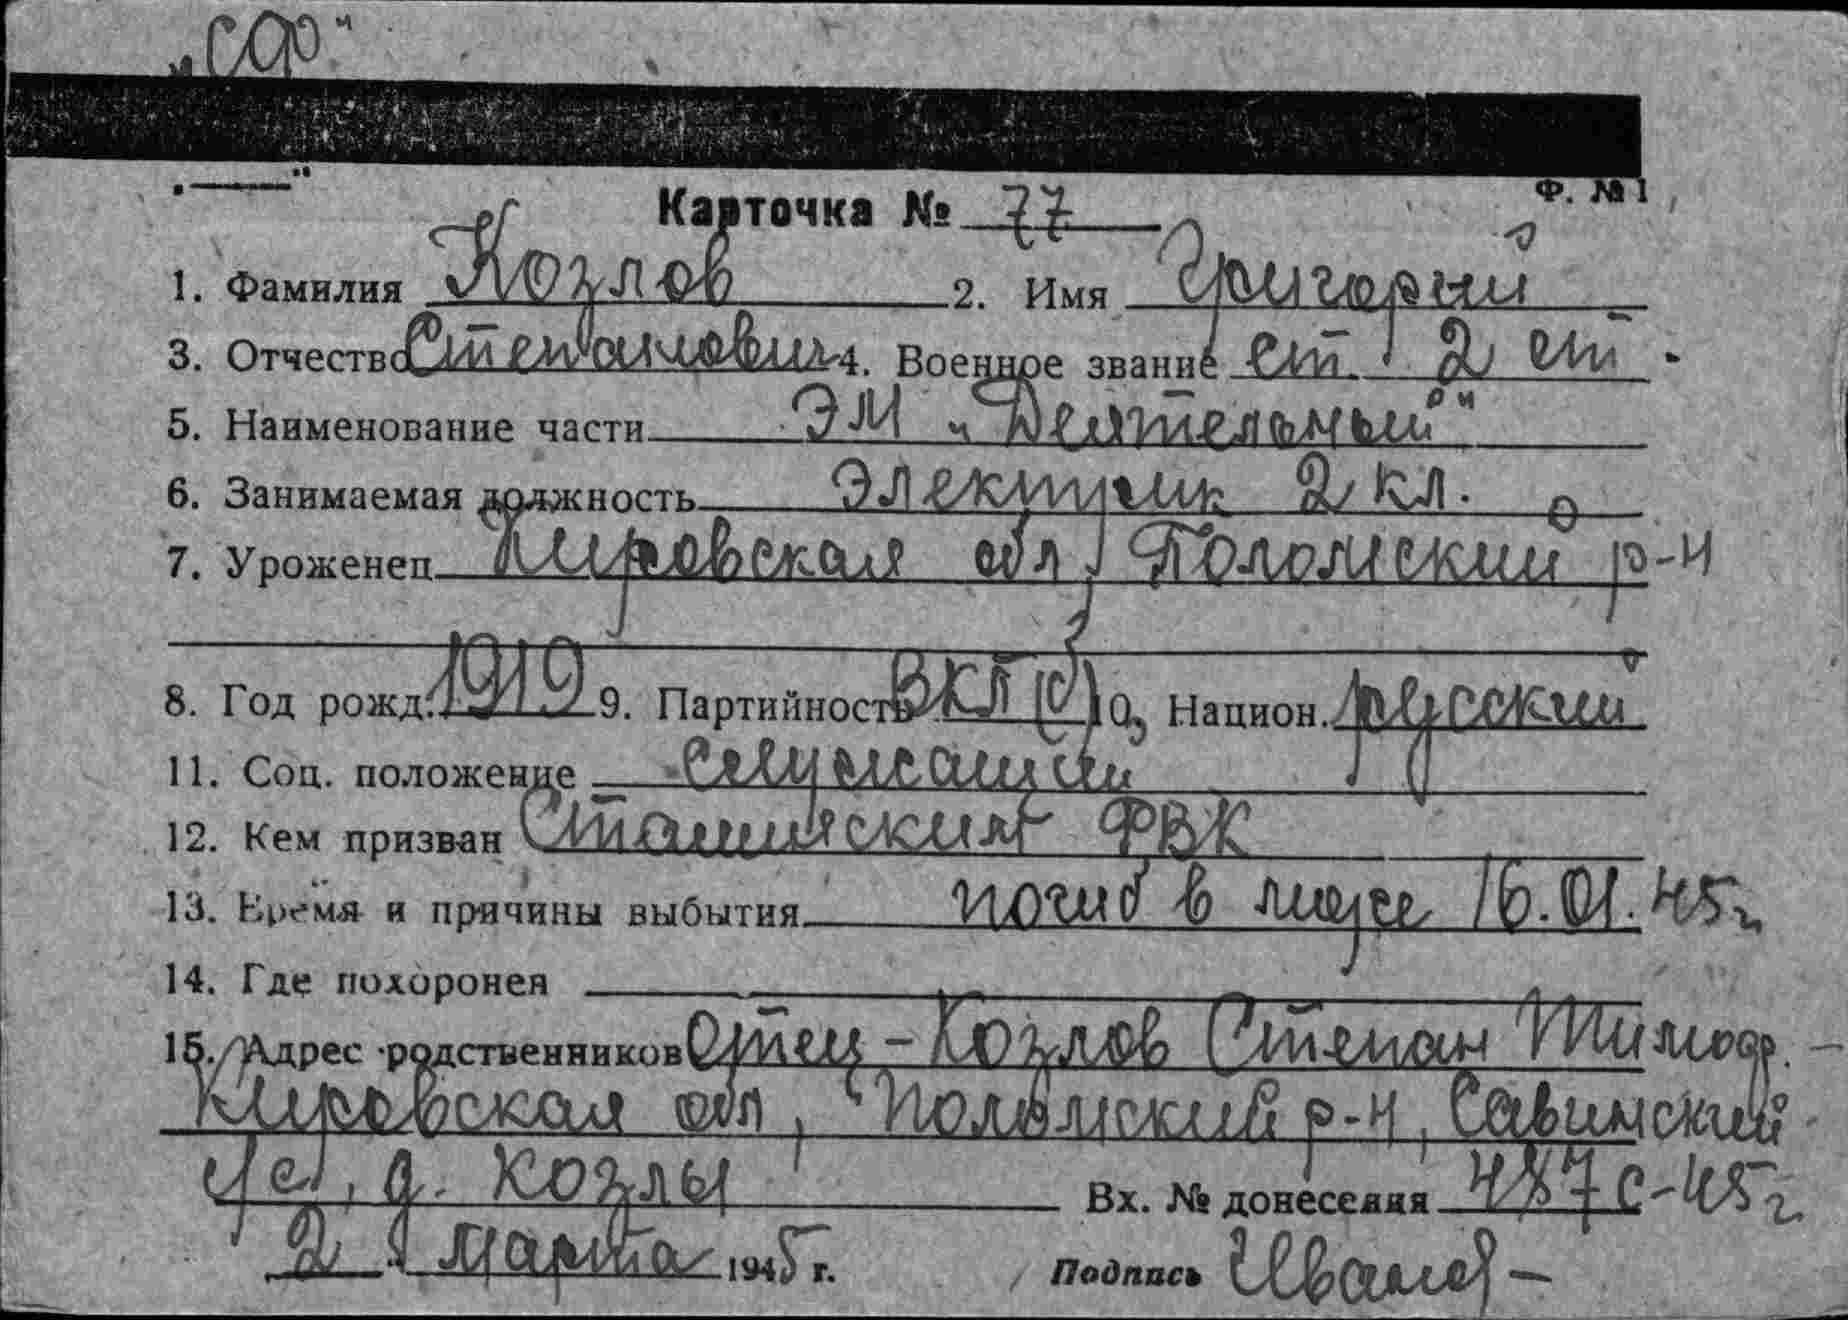 „СФ"
Ф. № 1
Карточка № 77
1. Фамилия Козлов 2. Имя Григорий
3. Отчество Степанович 4. Военное звание ст. 2 ст.
5. Наименование части ЭМ „Деятельный"
6. Занимаемая должность электрик 2 кл.
7. Уроженец Кировская обл, Поломский р-н
8. Год рожд. 1919 9. Партийность ВКП(б) 10. Национ. русский
11. Соц. положение служащий
12. Кем призван РВК
13. Время и причины выбытия погиб в море 16.01.45г
14. Где похоронен
15. Адрес родственников Отец - Козлов Степан Тимоф. -
Кировская обл, Поломский р-н, Савинский
с/с, д. Козлы Вх. № донесения 487с-45г.
2 марта 1945 г. Подпись Иванов